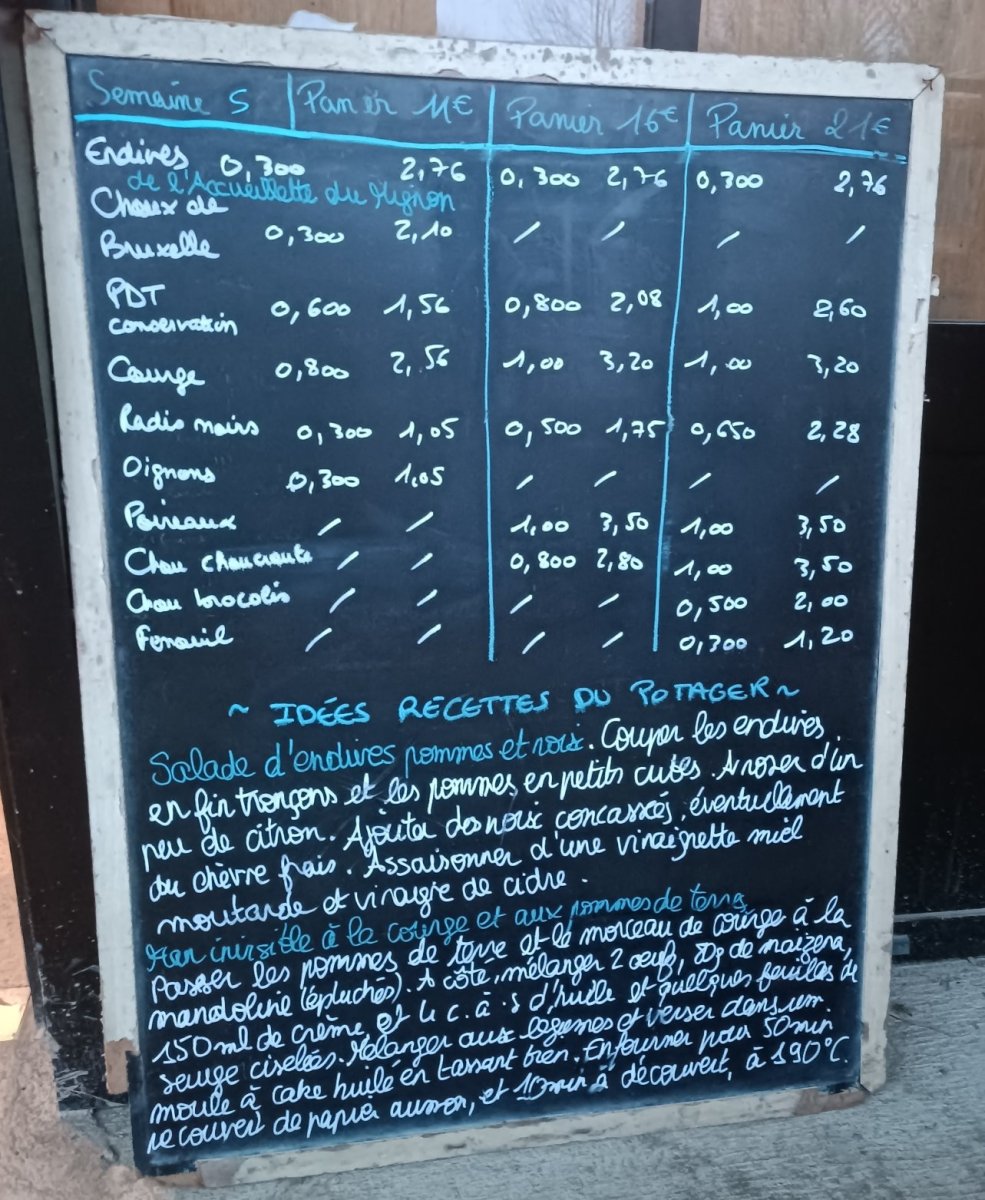 Semaine 5 Panier 11€ Panier 16€ Panier 21€
Endives 0,300 2,76 0,300 2,76 0,300 2,76
de l'Accueillette du Mignon
Choux de
Bruxelle 0,300 2,10 / / / /
PDT
conservation 0,600 1,56 0,800 2,08 1,00 2,60
Courge 0,800 2,56 1,00 3,20 1,00 3,20
Radis noirs 0,300 1,05 0,500 1,75 0,650 2,28
Oignons 0,300 1,05 / / / /
Poireaux / / 1,00 3,50 1,00 3,50
Chou choucroute / / 0,800 2,80 1,00 3,50
Chou brocolis / / / / 0,500 2,00
Fenouil / / / / 0,300 1,20
~ IDÉES RECETTES DU POTAGER ~
Salade d'endives pommes et noix. Couper les endives
en fin tronçons et les pommes en petits cubes. Arroser d'un
peu de citron. Ajouter des noix concassés, éventuellement
du chèvre frais. Assaisonner d'une vinaigrette miel
moutarde et vinaigre de cidre.
invisible à la courge et aux pommes de terre
Passer les pommes de terre et le morceau de courge à la
mandoline (épluchés). A côté, mélanger 2 œufs, 80g de maïzena,
150ml de crème, et 4 c. à .s d'huile et quelques feuilles de
sauge ciselées. Mélanger aux légumes et verser dans un
moule à cake huilé en tassant bien. Enfourner pour 50min
recouvert de papier , et 10min à découvert, à 190°C.